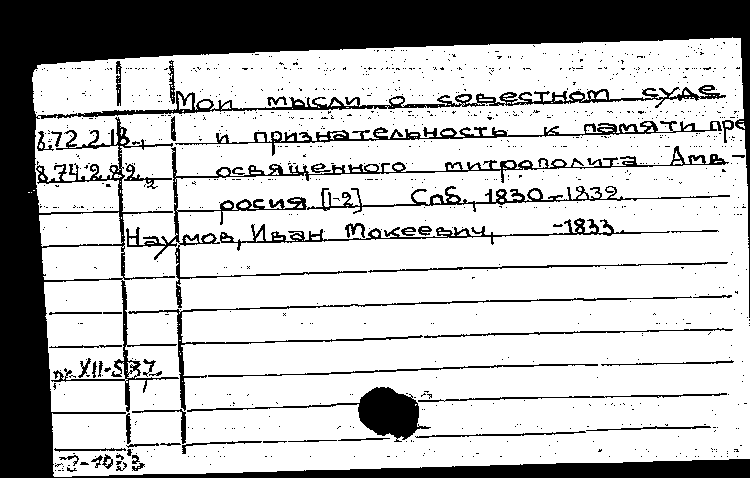 Мои мысли о совестном суде
8.72.2.18., и признательность к памяти пре
8.74.2.82., освященного митрополита Амв-
росия [1-2] Спб., 1830-1832.
Наумов, Иван Мокеевич, -1833.
XII-537
-1033